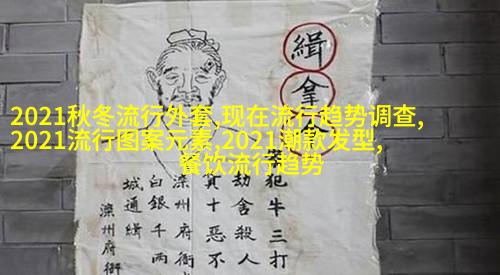 2021秋冬流行外套,现在流行趋势调查,
2021流行图案元素,2021潮款发型,
餐饮流行趋势
緝拿
犯牛三打
劫舍殺人
真十惡不
灤州府衙
白銀千兩
城通緝
灤州府衙